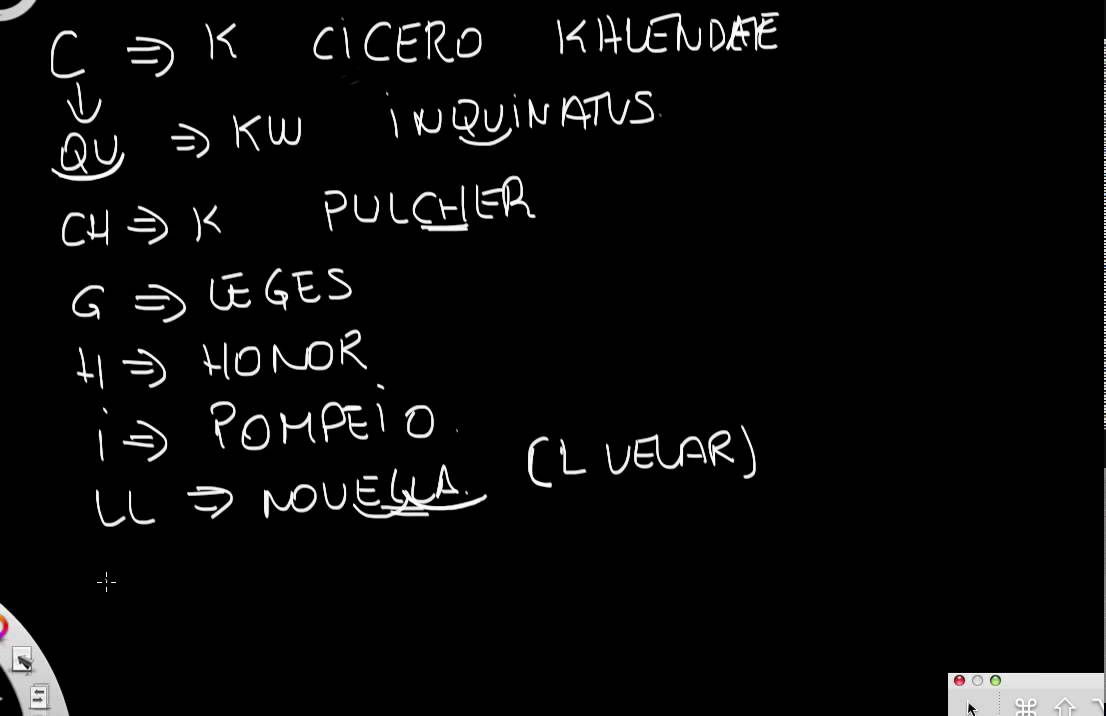 C ⇒ K CiCERO KHLENDAE
↓
QU ⇒ KW iNQUiNATUS.
CH ⇒ K PULCHER
G ⇒ LEGES
H ⇒ HONOR
i ⇒ POMPEiO.
LL ⇒ NOUELLA. (L VELAR)